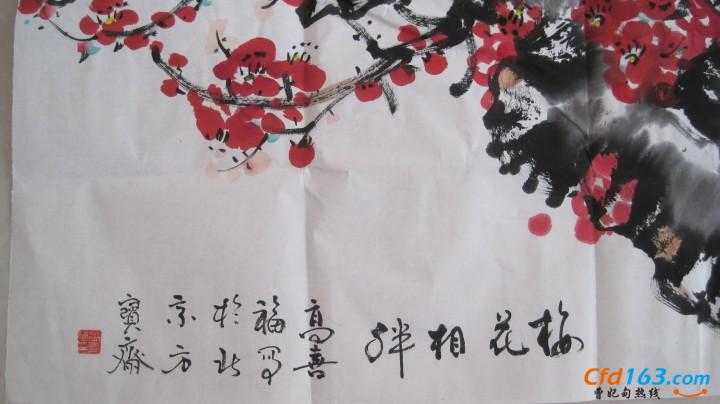 梅花相伴
高喜
福写
於北
京方
寶齋
Cfd163.com
曹妃甸热线